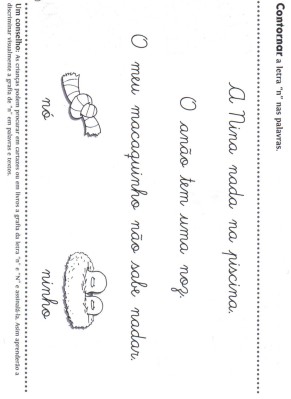 Contornar a letra "n" nas palavras.
A Nina nada na piscina.
O anão tem uma noz.
O meu macaquinho não sabe nadar.
nó ninho
Um conselho: As crianças podem procurar em cartazes ou em livros a grafia da letra "n" e "N" e assinalá-la. Assim aprenderão a
discriminar visualmente a grafia de "n" em palavras e textos.